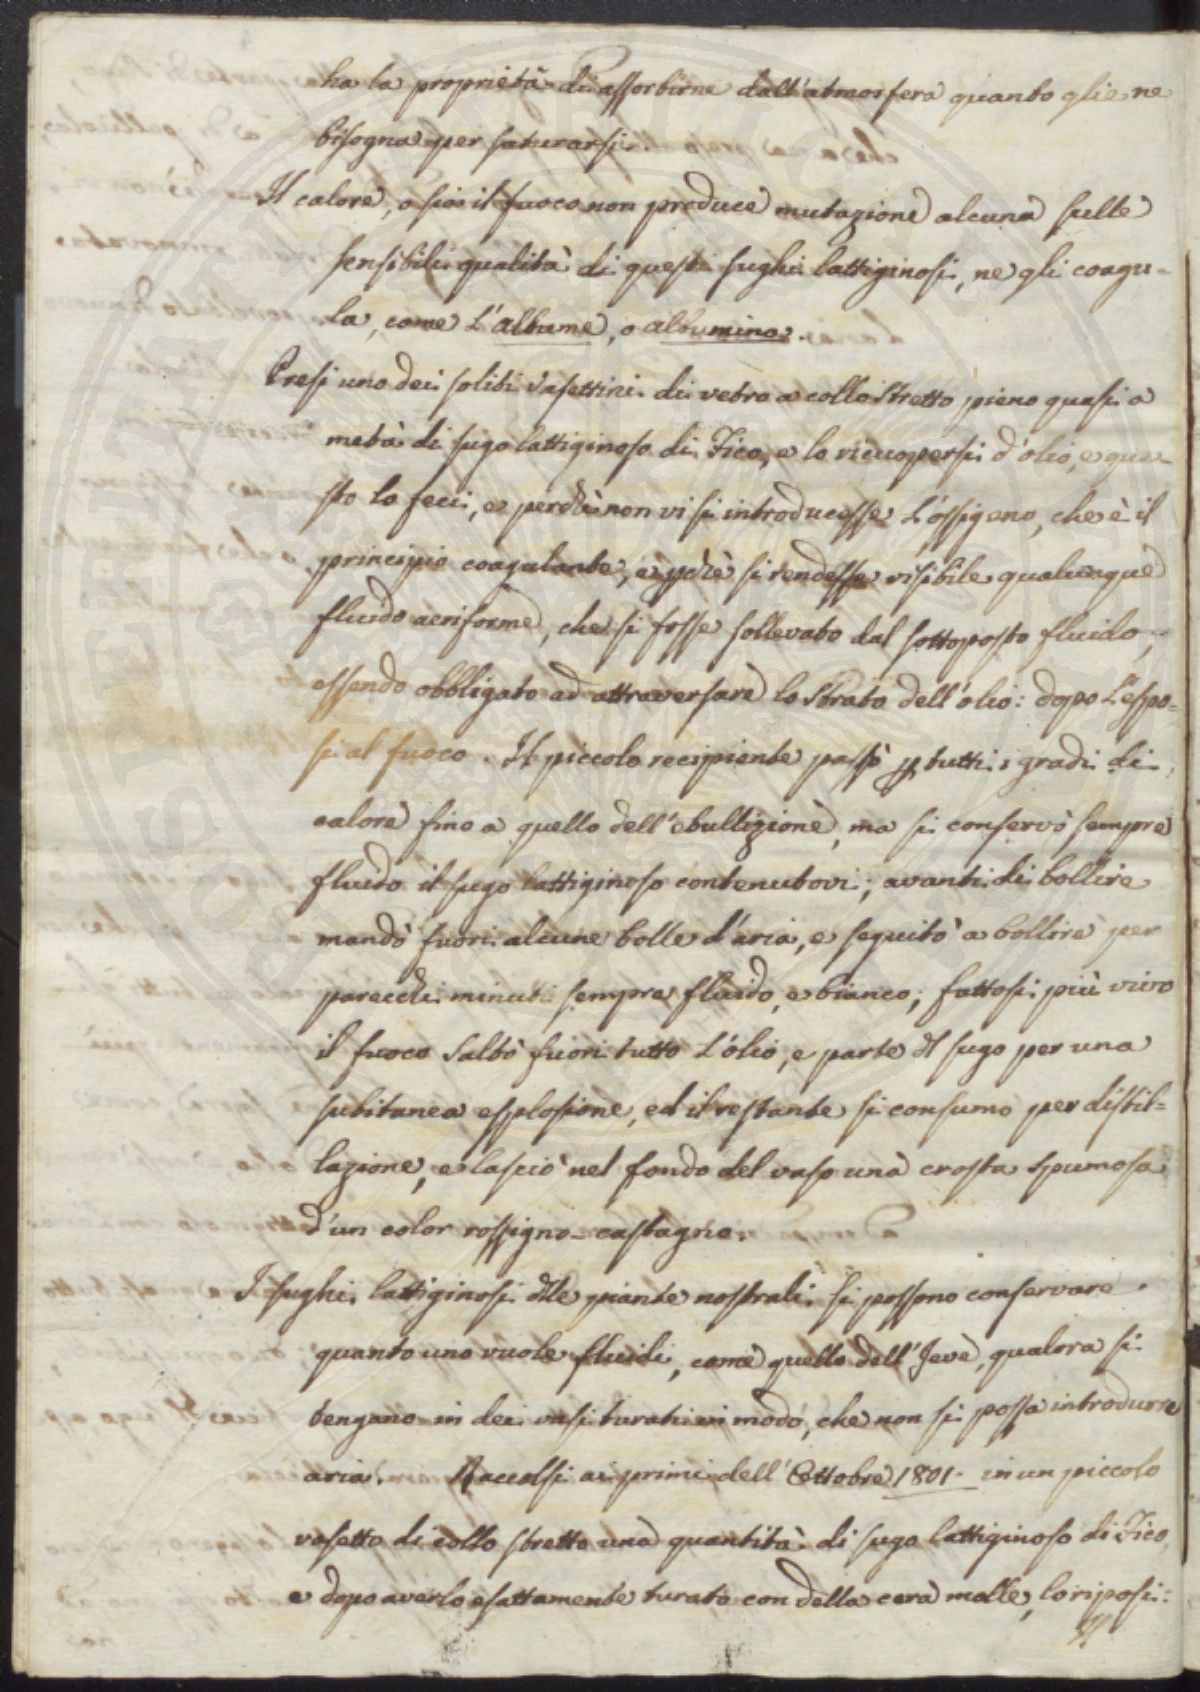 ha la proprietà di assorbirne dall'atmosfera quanto glie ne
bisogna per saturarsi.
Il calore, o sia il fuoco non produce mutazione alcuna sulle
sensibili qualità di questi sughi lattiginosi, ne gli coagu-
la, come l'albume, o albumina.
Presi uno dei soliti vasettini di vetro a collo stretto pieno quasi a
metà di sugo lattiginoso di Fico, e lo ricuopersi d'olio, e que-
sto lo feci, e perchè non vi si introducesse l'ossigeno, che è il
principio coagulante, e pchè si rendesse visibile qualunque
fluido aeriforme, che si fosse sollevato dal sottoposto fluido,
essendo obbligato ad attraversare lo strato dell'olio: dopo l'espo-
si al fuoco. Il piccolo recipiente passò p tutti i gradi di
calore fino a quello dell'ebullizione, ma si conservò sempre
fluido il sugo lattiginoso contenutovi; avanti di bollire
mandò fuori alcune bolle d'aria, e seguitò a bollire per
parecchi minuti sempre fluido, e bianco; fattosi più vivo
il fuoco saltò fuori tutto l'olio, e parte dl sugo per una
subitanea esplosione, ed il restante si consumo per distil=
lazione, e lasciò nel fondo del vaso una crosta spumosa
d'un color rossigno-castagno.
I sughi lattiginosi dlle piante nostrali si possono conservare
quanto uno vuole fluidi, come quello dell'Jevè, qualora si
tengano in dei vasi turati in modo, che non si possa introdurre
aria. Raccolsi ai primi dell'Ottobre 1801. in un piccolo
vasetto di collo stretto una quantità di sugo lattiginoso di Fico,
e dopo averlo esattamente turato con della cera molle, lo riposi: